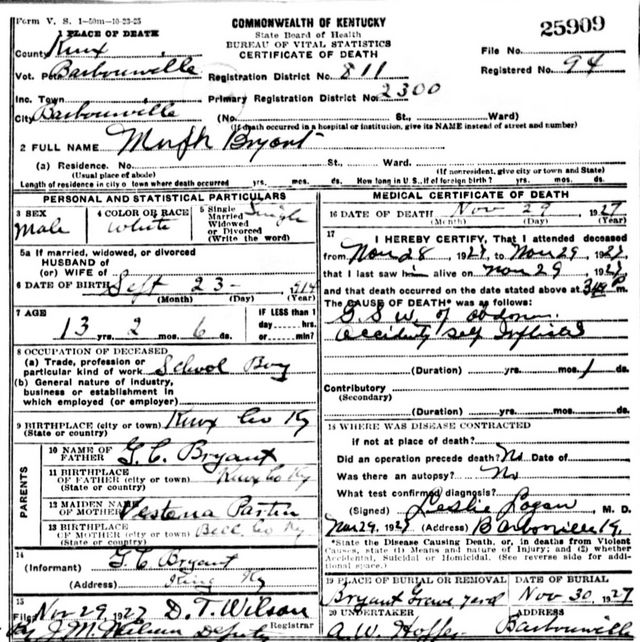 Form V. S. 1-50m-10-23-25
COMMONWEALTH OF KENTUCKY
State Board of Health
BUREAU OF VITAL STATISTICS
CERTIFICATE OF DEATH
25909
File No.
Registered No. 94
1 PLACE OF DEATH
County Knox
Vot. P. Barbourville Registration District No. 811
Inc. Town Primary Registration District No. 2300
City Barbourville (No. St., Ward)
(If death occurred in a hospital or institution, give its NAME instead of street and number)
2 FULL NAME Bryant
(a) Residence. No. St., Ward.
(Usual place of abode) (If nonresident, give city or town and State)
Length of residence in city or town where death occurred yrs. mos. ds. How long in U. S., if of foreign birth? yrs. mos. ds.
PERSONAL AND STATISTICAL PARTICULARS
3 SEX 4 COLOR OR RACE 5 Single Married Widowed or Divorced (Write the word)
Male White Single
5a If married, widowed, or divorced
HUSBAND of
(or) WIFE of
6 DATE OF BIRTH Sept 23 - 1914
(Month) (Day) (Year)
7 AGE IF LESS than 1 day, hrs. or min?
13 yrs. 2 mos. 6 ds.
8 OCCUPATION OF DECEASED
(a) Trade, profession or
particular kind of work School Boy
(b) General nature of industry,
business or establishment in
which employed (or employer)
9 BIRTHPLACE (city or town) Knox Co Ky
(State or country)
PARENTS
10 NAME OF
FATHER G. C. Bryant
11 BIRTHPLACE
OF FATHER (city or town) Knox Co Ky
(State or country)
12 MAIDEN NAME
OF MOTHER Vestena Partin
13 BIRTHPLACE
OF MOTHER (city or town) Bell Co Ky
(State or country)
14
(Informant) G C Bryant
(Address) King Ky
15
Filed Nov 29, 1927 D. T. Wilson
Registrar
By J M Wilson Deputy
MEDICAL CERTIFICATE OF DEATH
16 DATE OF DEATH Nov 29 1927
(Month) (Day) (Year)
17
I HEREBY CERTIFY, That I attended deceased
from Nov 28, 1927, to Nov 29, 1927,
that I last saw him alive on Nov 29, 1927,
and that death occurred on the date stated above at P m.
The CAUSE OF DEATH* was as follows:
G. S. W. of abdomen
Accidently Self Inflicted
(Duration) yrs. mos. 1 ds.
Contributory
(Secondary)
(Duration) yrs. mos. ds.
18 WHERE WAS DISEASE CONTRACTED
if not at place of death?
Did an operation precede death? No Date of
Was there an autopsy? No
What test confirmed diagnosis?
(Signed) Leslie Logan M. D.
Nov 29, 1927 (Address) Barbourville Ky.
*State the Disease Causing Death, or, in deaths from Violent
Causes, state (1) Means and nature of Injury; and (2) whether
Accidental, Suicidal or Homicidal. (See reverse side for addi-
tional space.)
19 PLACE OF BURIAL OR REMOVAL DATE OF BURIAL
Bryant Grave yard Nov 30 1927
20 UNDERTAKER ADDRESS
A. W. Hopper Barbourville